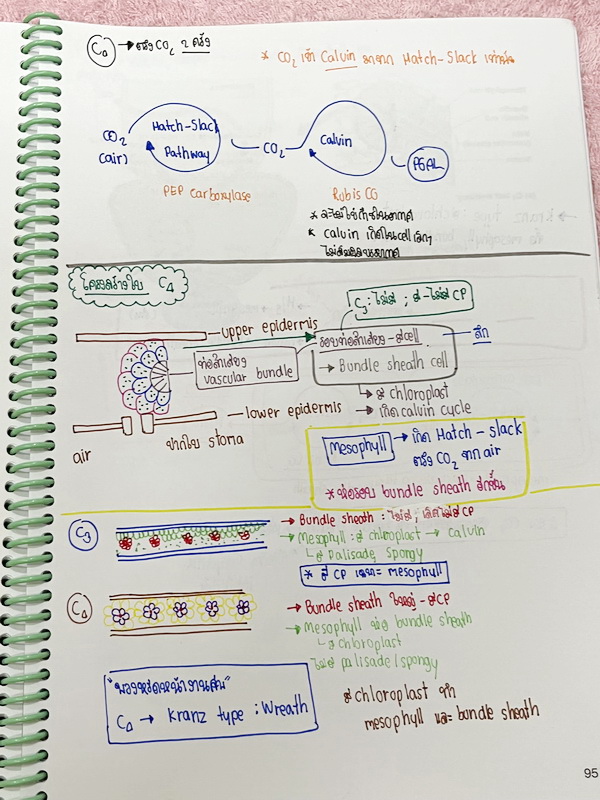 C₄ → ตรึง CO₂ 2 ครั้ง
* CO₂ เข้า Calvin มาจาก Hatch-Slack เท่านั้น
CO₂
(air)
Hatch-Slack
Pathway
CO₂
Calvin
PGAL
PEP Carboxylase
Rubis CO
* Calvin เกิดใน cell
โครงสร้างใบ C₄
C₃ : ไม่มี ; มี-ไม่มี CP
upper epidermis
ท่อลำเลียง
vascular bundle
รอบท่อลำเลียง-มี cell
→ Bundle sheath cell
ลึก
↳ มี chloroplast
→ เกิด calvin cycle
lower epidermis
ปากใบ stoma
air
Mesophyll → เกิด Hatch-slack
ตรึง CO₂ จาก air
* ห่อรอบ bundle sheath อีกชั้น
C₃
→ Bundle sheath : ไม่มี ; มีแต่ไม่มี CP
→ Mesophyll : มี chloroplast → calvin
↳ มี palisade spongy
* มี CP เฉพาะ mesophyll
C₄
→ Bundle sheath ใหญ่ - มี CP
→ Mesophyll ห่อ bundle sheath
↳ chloroplast
ไม่มี palisade / spongy
C₄ → Kranz type : Wreath
มี chloroplast ทั้ง
mesophyll และ bundle sheath
95